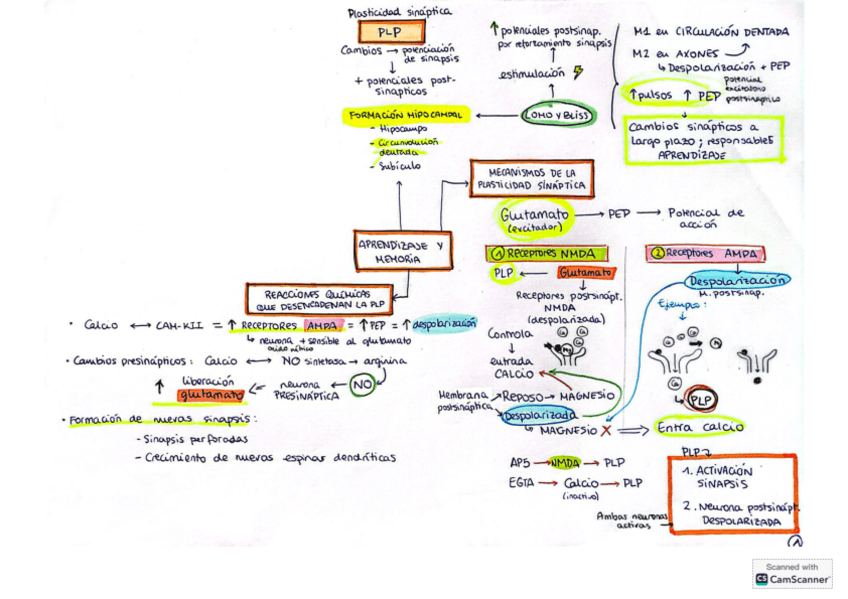 Plasticidad sináptica
PLP
Cambios → potenciación
de sinapsis
+ potenciales post-
sinapticos
FORMACIÓN HIPOCAMPAL
- Hipocampo
- Circunvolución
dentada
- Subículo
↑ potenciales postsinap.
por reforzamiento sinapsis
estimulación
LOMO Y BLISS
M1 en CIRCULACIÓN DENTADA
M2 en AXONES
↳ Despolarización + PEP
↑ pulsos ↑ PEP
potencial
excitatorio
postsináptico
Cambios sinápticos a
largo plazo; responsables
APRENDIZAJE
MECANISMOS DE LA
PLASTICIDAD SINÁPTICA
Glutamato → PEP → Potencial de
acción
(excitador)
APRENDIZAJE Y
MEMORIA
REACCIONES QUÍMICAS
QUE DESENCADENAN LA PLP
• Calcio ↔ CAM-KII = ↑ RECEPTORES AMPA = ↑ PEP = ↑ despolarización
↳ neurona + sensible al glutamato
ácido nítrico
• Cambios presinápticos: Calcio ↔ NO sintetasa → arginina
↑ liberación
glutamato ⇐ neurona
PRESINÁPTICA ← NO
• Formación de nuevas sinapsis:
- Sinapsis perforadas
- Crecimiento de nuevas espinas dendríticas
① Receptores NMDA
PLP ← Glutamato
Receptores postsinápt.
NMDA
(despolarizada)
Controla
↓
entrada
CALCIO
Membrana
postsináptica
Reposo → MAGNESIO
Despolarizada
↳ MAGNESIO X ⇒ Entra calcio
AP5 → NMDA → PLP
EGTA → Calcio → PLP
(inactivo)
② Receptores AMPA
Despolarización
M. postsinap.
Ejemplo:
Ca
Mg
↳ PLP
PLP
1. ACTIVACIÓN
SINAPSIS
2. Neurona postsinápt.
DESPOLARIZADA
Ambas neuronas
activas
1
Scanned with
CS CamScanner